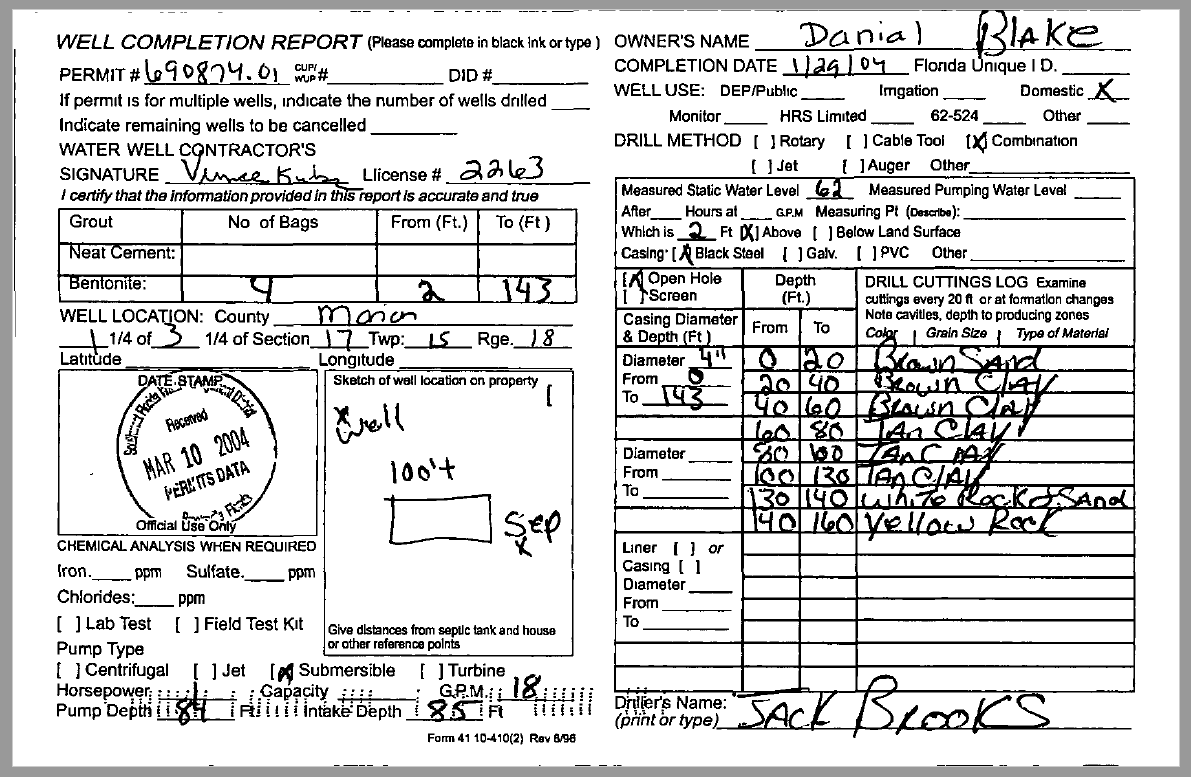 WELL COMPLETION REPORT (Please complete in black ink or type)
PERMIT # 690874.01 CUP/WUP # DID #
If permit is for multiple wells, indicate the number of wells drilled
Indicate remaining wells to be cancelled
WATER WELL CONTRACTOR'S
SIGNATURE Vince License # 2263
I certify that the information provided in this report is accurate and true
Grout No of Bags From (Ft.) To (Ft)
Neat Cement:
Bentonite: 4 2 143
WELL LOCATION: County Marion
1 1/4 of 3 1/4 of Section 17 Twp: 15 Rge. 18
Latitude Longitude
DATE STAMP
Received
MAR 10 2004
PERMITS DATA
Official Use Only
Sketch of well location on property
1
x
Well
100'+
Sep
x
Give distances from septic tank and house
or other reference points
CHEMICAL ANALYSIS WHEN REQUIRED
Iron. ppm Sulfate. ppm
Chlorides: ppm
[ ] Lab Test [ ] Field Test Kit
Pump Type
[ ] Centrifugal [ ] Jet [X] Submersible [ ] Turbine
Horsepower 1 Capacity G.P.M. 18
Pump Depth 84 Ft. Intake Depth 85 Ft
Form 41 10-410(2) Rev 6/96
OWNER'S NAME Danial Blake
COMPLETION DATE 1/29/04 Florida Unique I D.
WELL USE: DEP/Public Irrigation Domestic X
Monitor HRS Limited 62-524 Other
DRILL METHOD [ ] Rotary [ ] Cable Tool [X] Combination
[ ] Jet [ ] Auger Other
Measured Static Water Level 62 Measured Pumping Water Level
After Hours at G.P.M Measuring Pt (Describe):
Which is 2 Ft [X] Above [ ] Below Land Surface
Casing: [X] Black Steel [ ] Galv. [ ] PVC Other
[X] Open Hole
[ ] Screen
Depth
(Ft.)
DRILL CUTTINGS LOG Examine
cuttings every 20 ft or at formation changes
Note cavities, depth to producing zones
Casing Diameter
& Depth (Ft)
From To Color Grain Size Type of Material
Diameter 4"
From 0
To 143
0 20 Brown Sand
20 40 Brown Clay
40 60 Brown Clay
60 80 Tan Clay
80 100 Tan Clay
100 130 Tan Clay
130 140 White Rock & Sand
140 160 Yellow Rock
Diameter
From
To
Liner [ ] or
Casing [ ]
Diameter
From
To
Driller's Name:
(print or type) JACK BROOKS